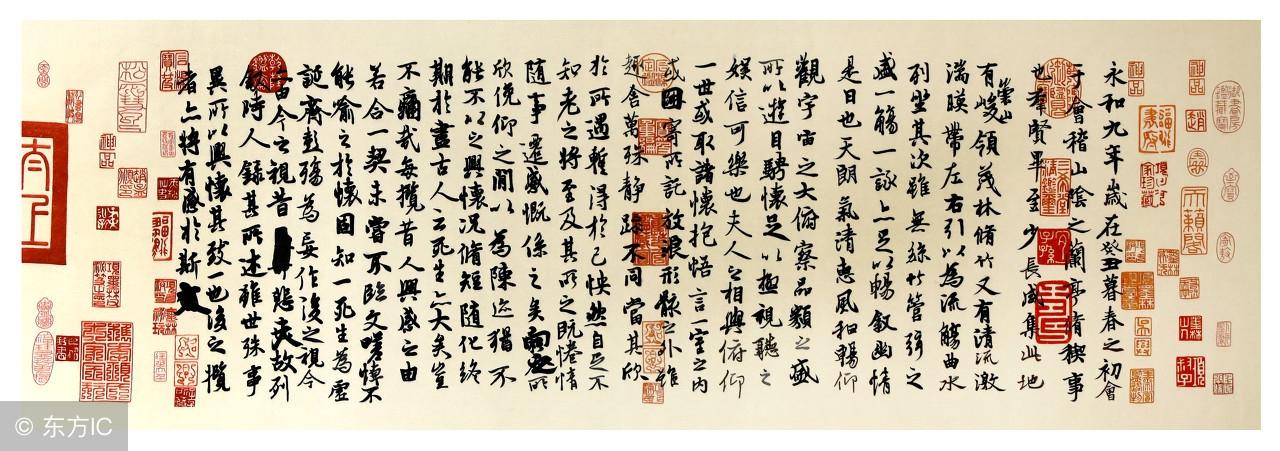 永和九年歲在癸丑暮春之初會
于會稽山陰之蘭亭脩稧事
也群賢畢至少長咸集此地
有崇山峻領茂林脩竹又有清流激
湍暎帶左右引以為流觴曲水
列坐其次雖無絲竹管弦之
盛一觴一詠亦足以暢叙幽情
是日也天朗氣清惠風和暢仰
觀宇宙之大俯察品類之盛
所以遊目騁懷足以極視聽之
娛信可樂也夫人之相與俯仰
一世或取諸懷抱悟言一室之內
或因寄所託放浪形骸之外雖
趣舍萬殊靜躁不同當其欣
於所遇蹔得於己怏然自足不
知老之將至及其所之既惓情
隨事遷感慨係之矣向之所
欣俛仰之閒以為陳迹猶不
能不以之興懷況脩短隨化終
期於盡古人云死生亦大矣豈
不痛哉每攬昔人興感之由
若合一契未嘗不臨文嗟悼不
能喻之於懷固知一死生為虛
誕齊彭殤為妄作後之視今
亦由今之視昔悲夫故列
叙時人錄其所述雖世殊事
異所以興懷其致一也後之攬
者亦將有感於斯文
© 东方IC